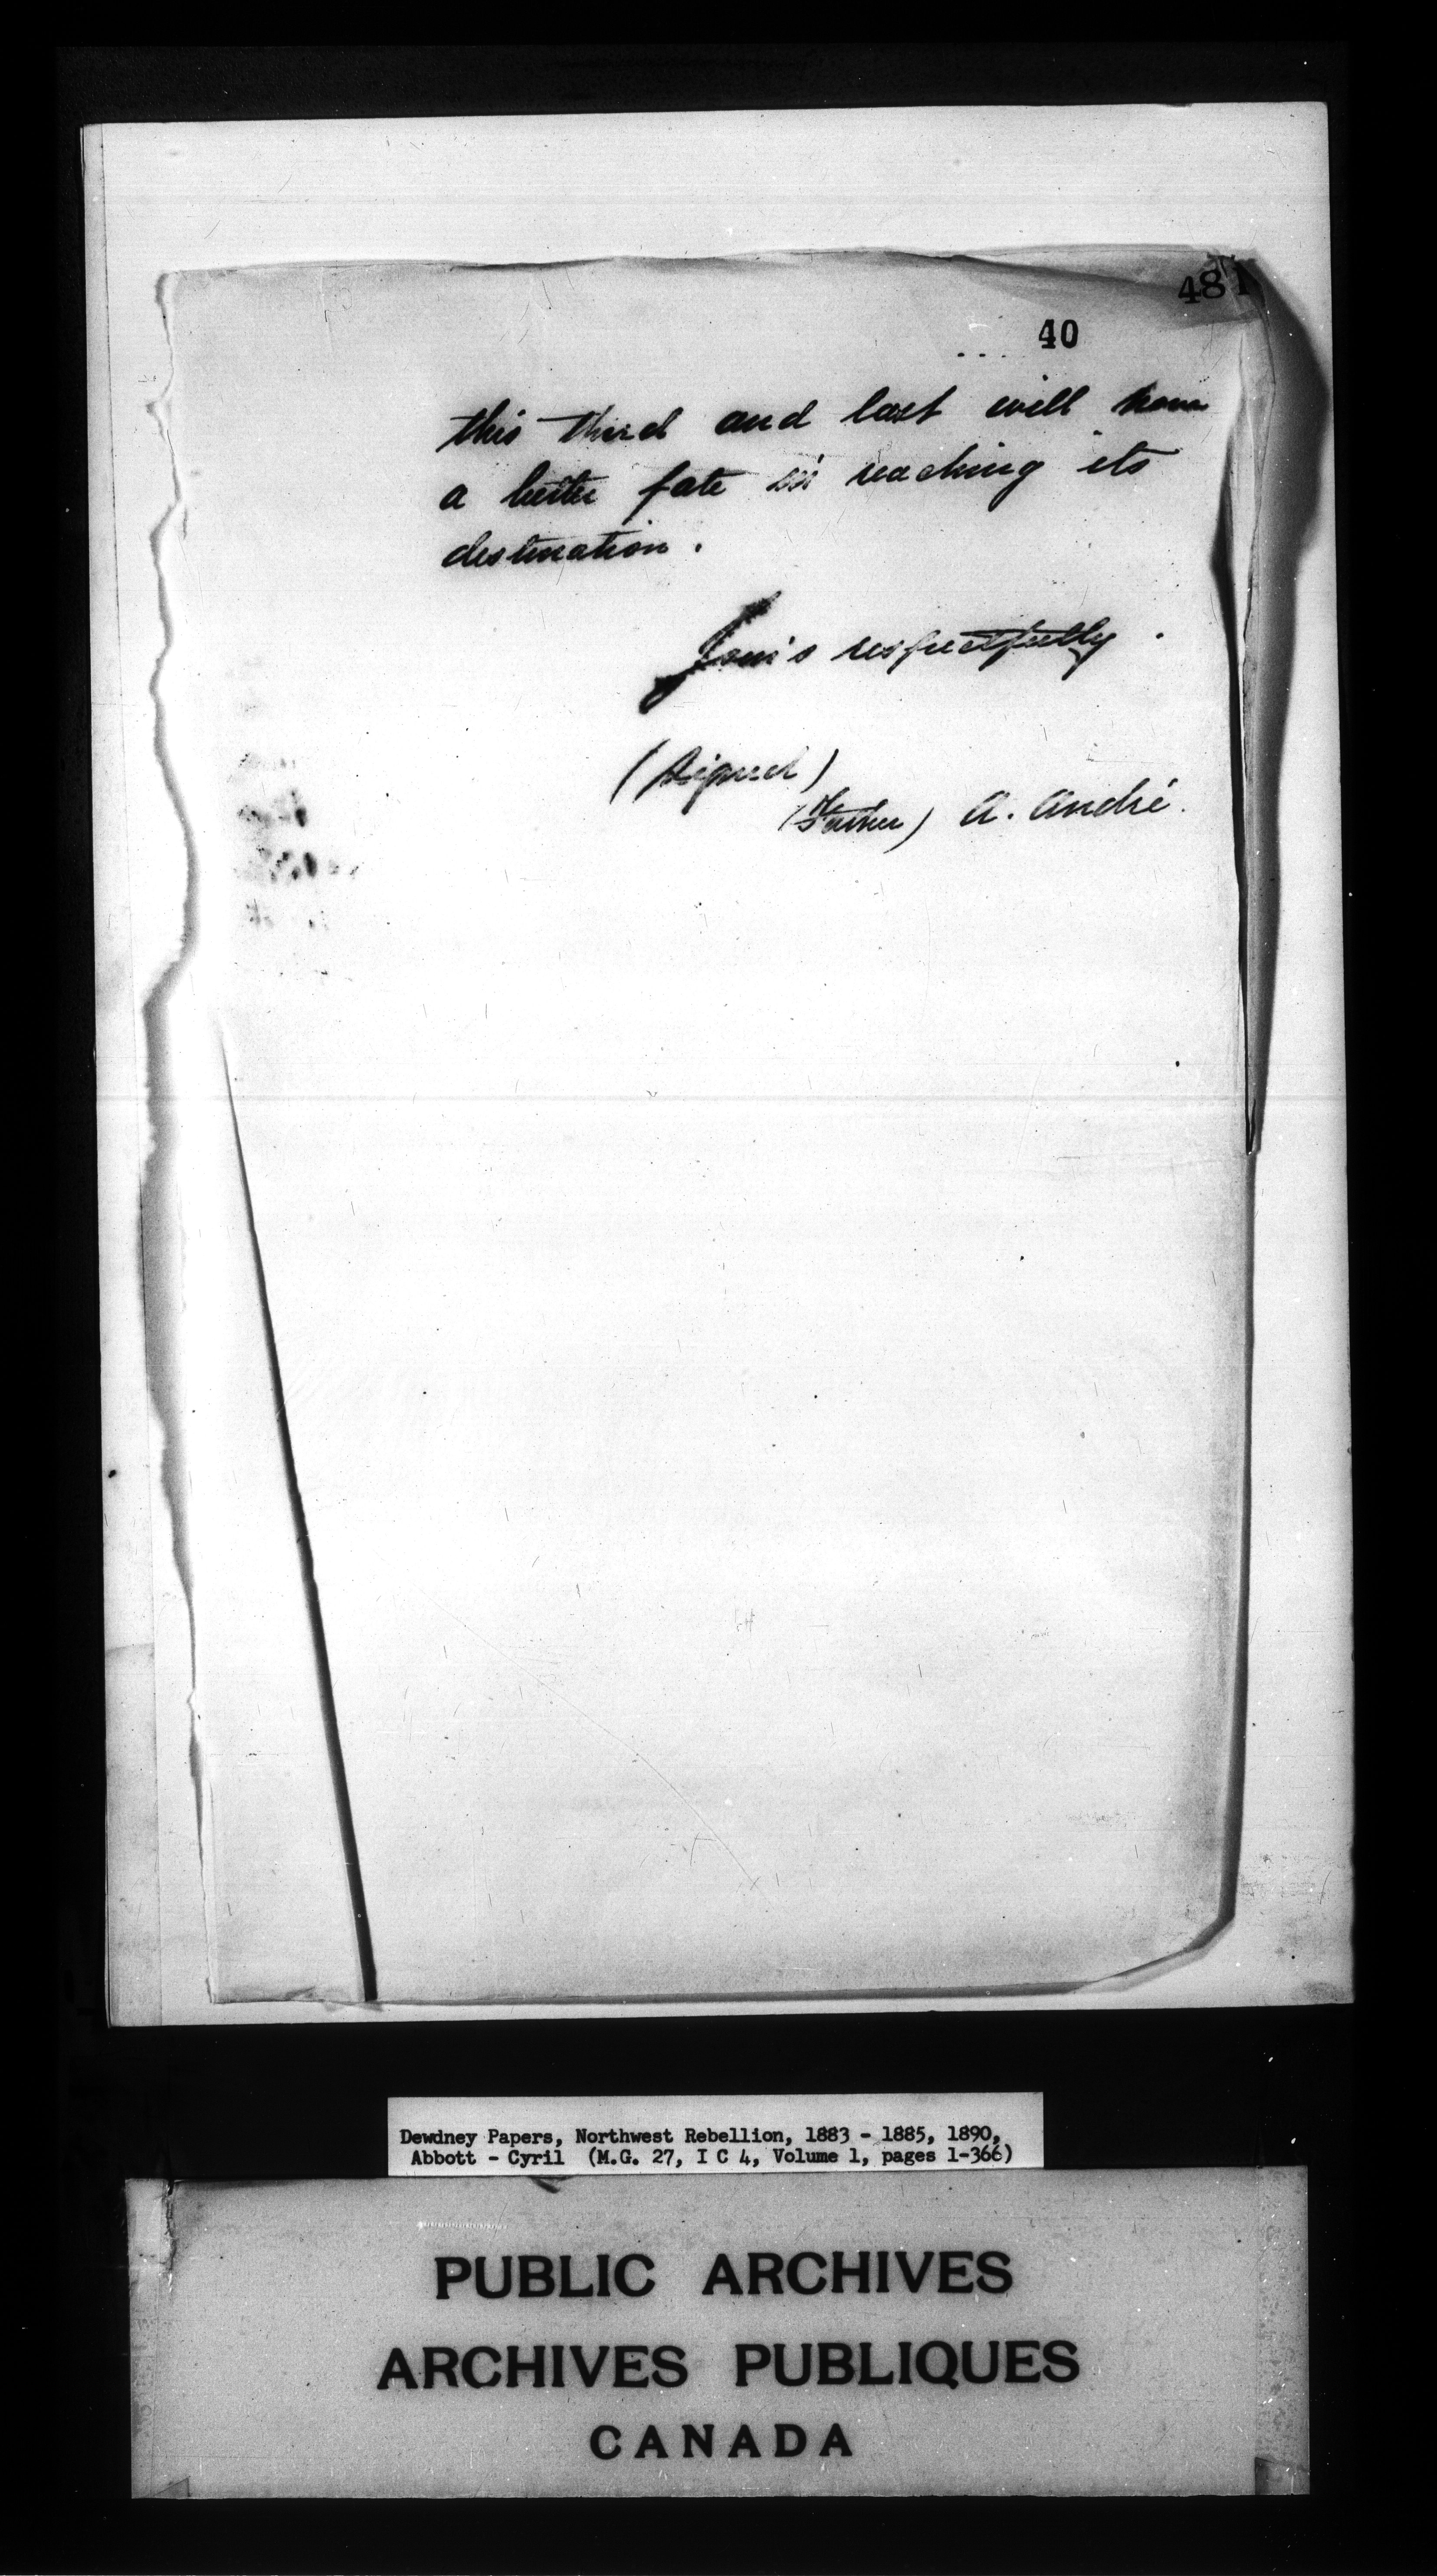 481
40
this third and last will have
a better fate in reaching its
destination.
Yours respectfully.
(Signed)
(Father) A. André.
Dewdney Papers, Northwest Rebellion, 1883 - 1885, 1890,
Abbott - Cyril (M.G. 27, I C 4, Volume 1, pages 1-366)
PUBLIC ARCHIVES
ARCHIVES PUBLIQUES
CANADA